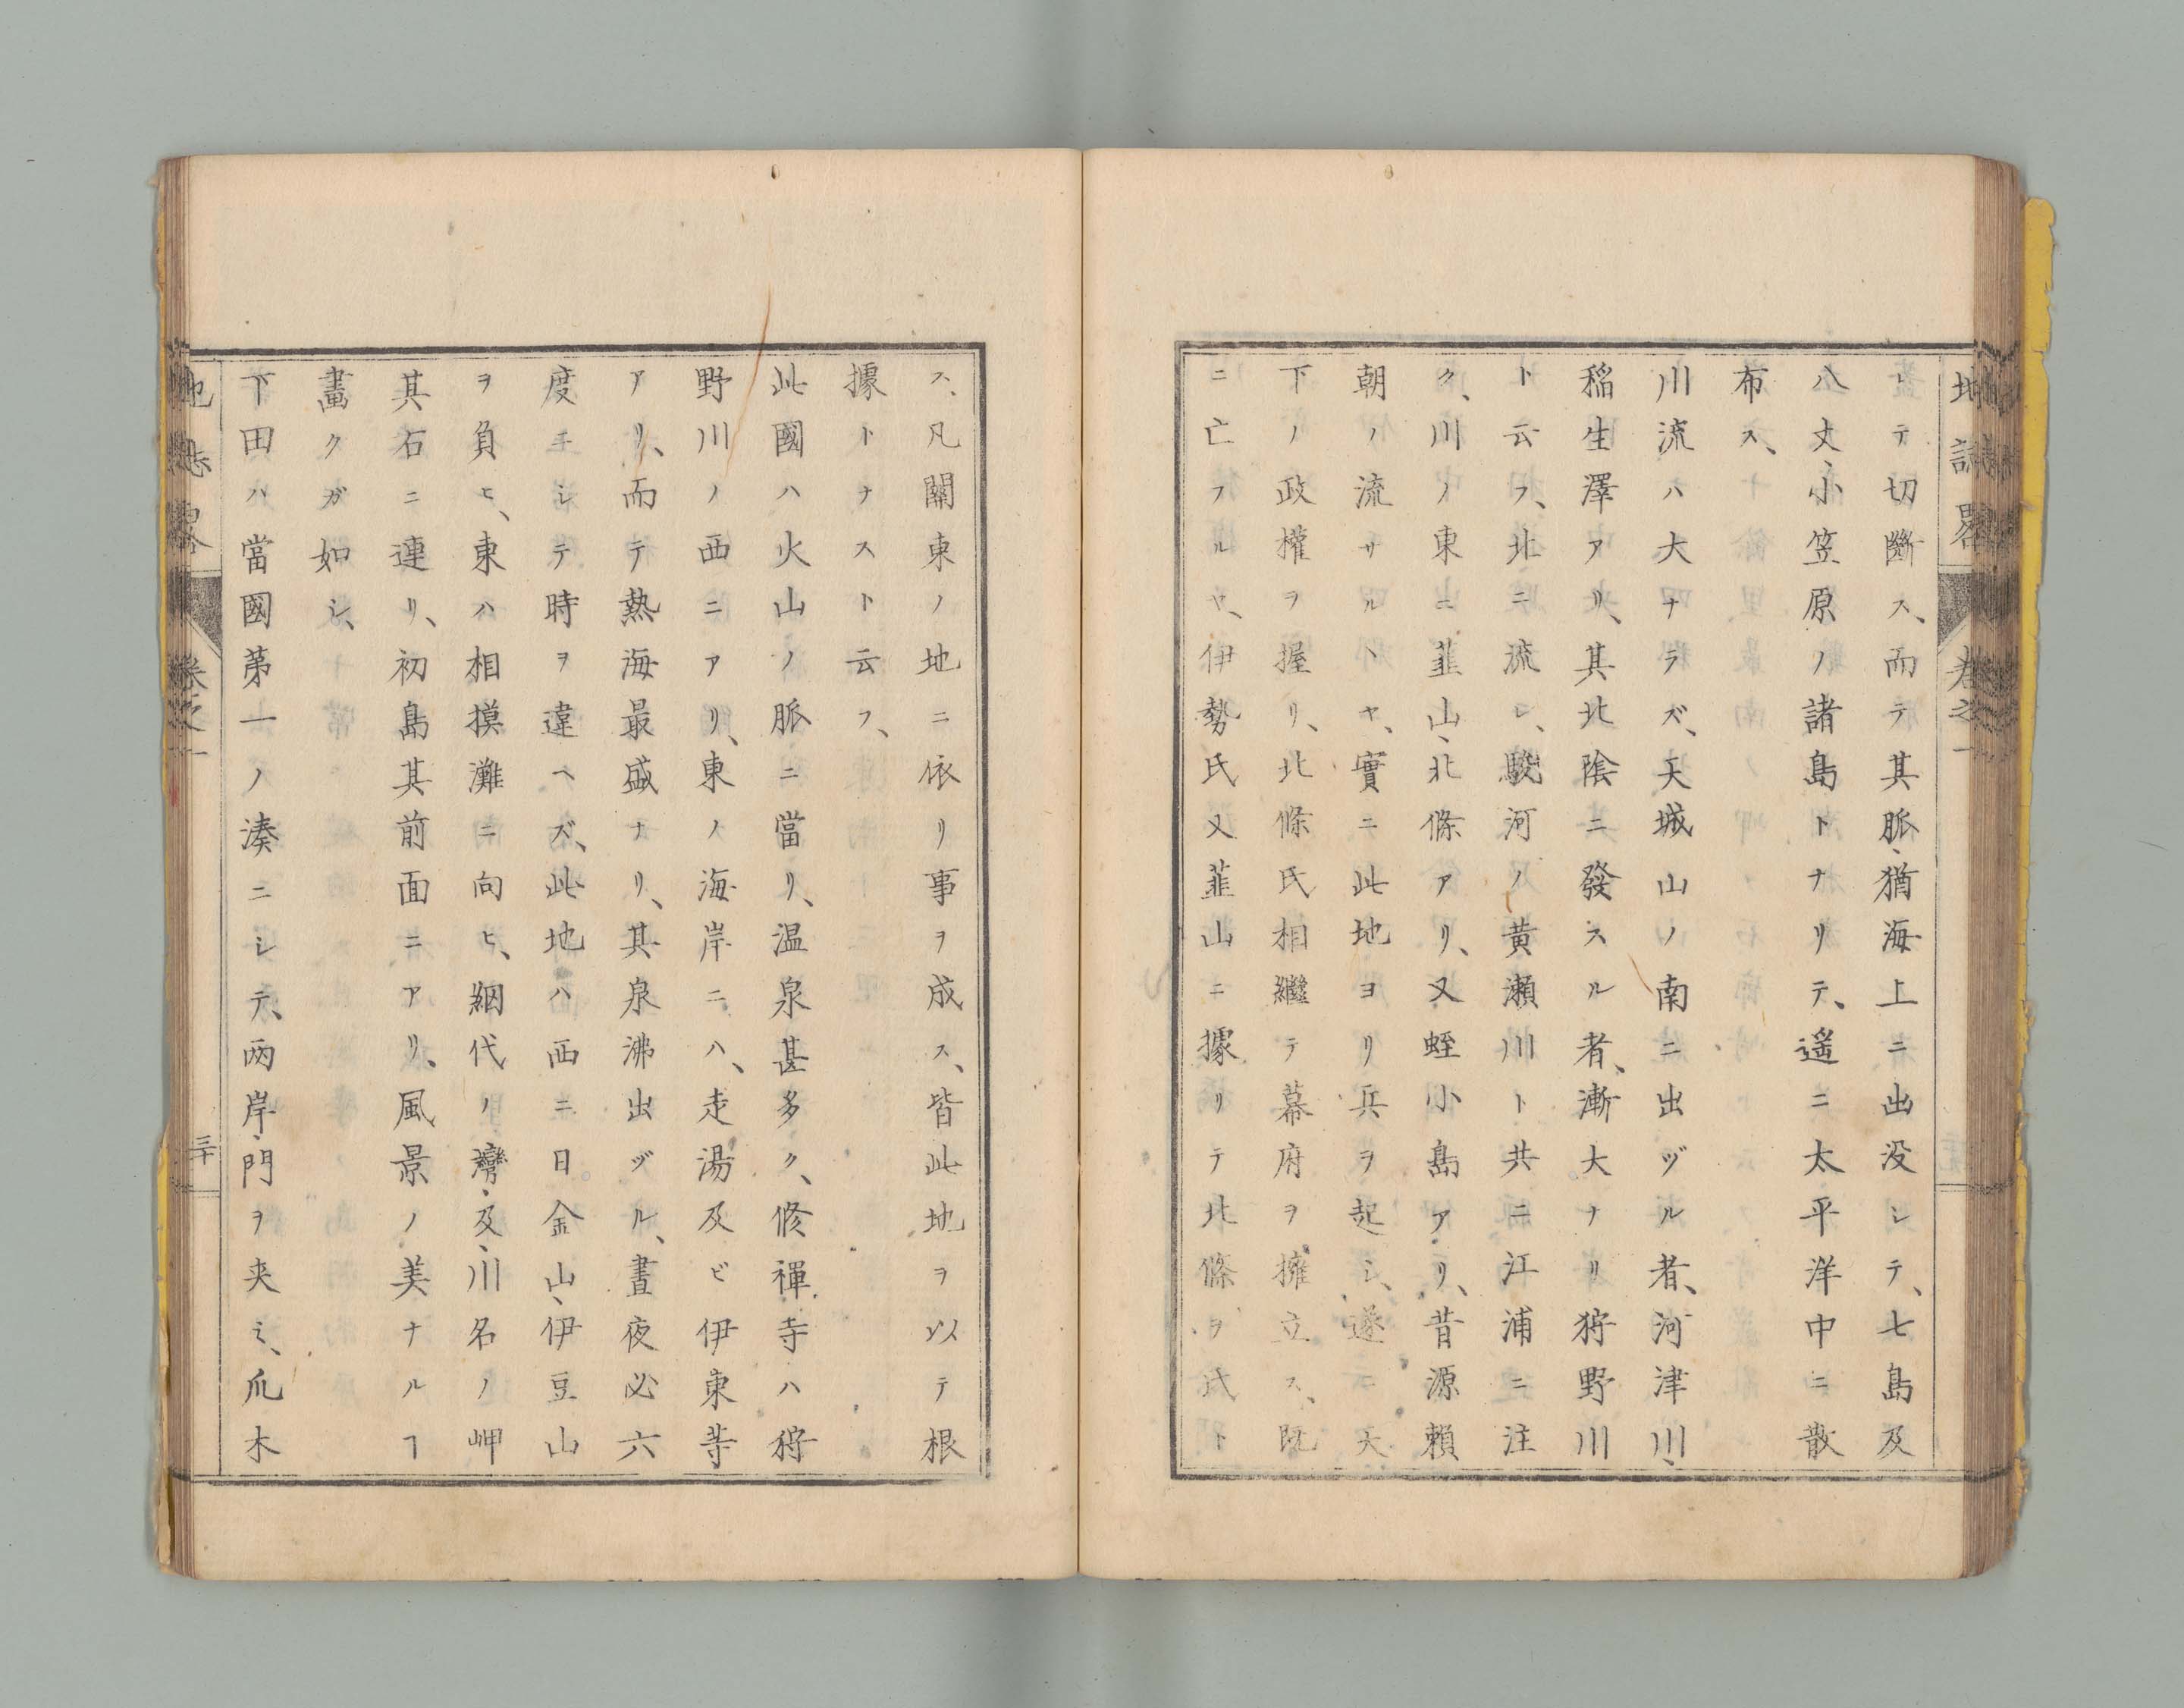 地誌畧 卷之一
シテ切斷ス、而テ其脈、猶海上ニ出没シテ、七島及
八丈、小笠原ノ諸島トナリテ、遙ニ太平洋中ニ散
布ス、
川流ハ大ナラズ、天城山ノ南ニ出ヅル者、河津川、
稲生澤アリ、其北陰ニ發スル者、漸大ナリ狩野川
ト云フ、北ニ流レ、駿河ノ黄瀬川ト共ニ江浦ニ注
ク、川ノ東ニ韮山、北條アリ、又蛭小島アリ、昔源頼
朝ノ流サルヽヤ、實ニ此地ヨリ兵ヲ起シ、遂ニ天
下ノ政權ヲ握リ、北條氏相繼テ幕府ヲ擁立ス、既
ニ亡フルヤ、伊勢氏又韮山ニ據リテ北條ヲ氏ト
ス、凡關東ノ地ニ依リ事ヲ成ス、皆此地ヲ以テ根
據トナスト云フ、
此國ハ火山ノ脈ニ當リ、温泉甚多ク、修禪寺ハ狩
野川ノ西ニアリ、東ノ海岸ニハ、走湯及ビ伊東等
アリ、而テ熱海最盛ナリ、其泉沸出ヅル、晝夜必六
度ニシテ時ヲ違ヘズ、此地ハ西ニ日金山、伊豆山
ヲ負ヒ、東ハ相摸灘ニ向ヒ、網代ノ灣、及、川名ノ岬
其石ニ連リ、初島其前面ニアリ、風景ノ美ナルヿ
畫クガ如シ、
下田ハ當國第一ノ湊ニシテ、両岸、門ヲ夾ミ、爪木
地誌畧 卷之一 三十